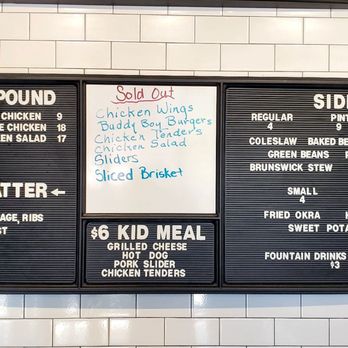 POUND
CHICKEN 9
E CHICKEN 18
EN SALAD 17
ATTER ←
AGE, RIBS
ST
Sold Out
Chicken Wings
Buddy Boy Burgers
Chicken Tenders
Chicken Salad
Sliders
Sliced Brisket
$6 KID MEAL
GRILLED CHEESE
HOT DOG
PORK SLIDER
CHICKEN TENDERS
SID
REGULAR PIN
4 9
COLESLAW BAKED BE
GREEN BEANS P
BRUNSWICK STEW
SMALL
4
FRIED OKRA
SWEET POTA
FOUNTAIN DRINKS
$3